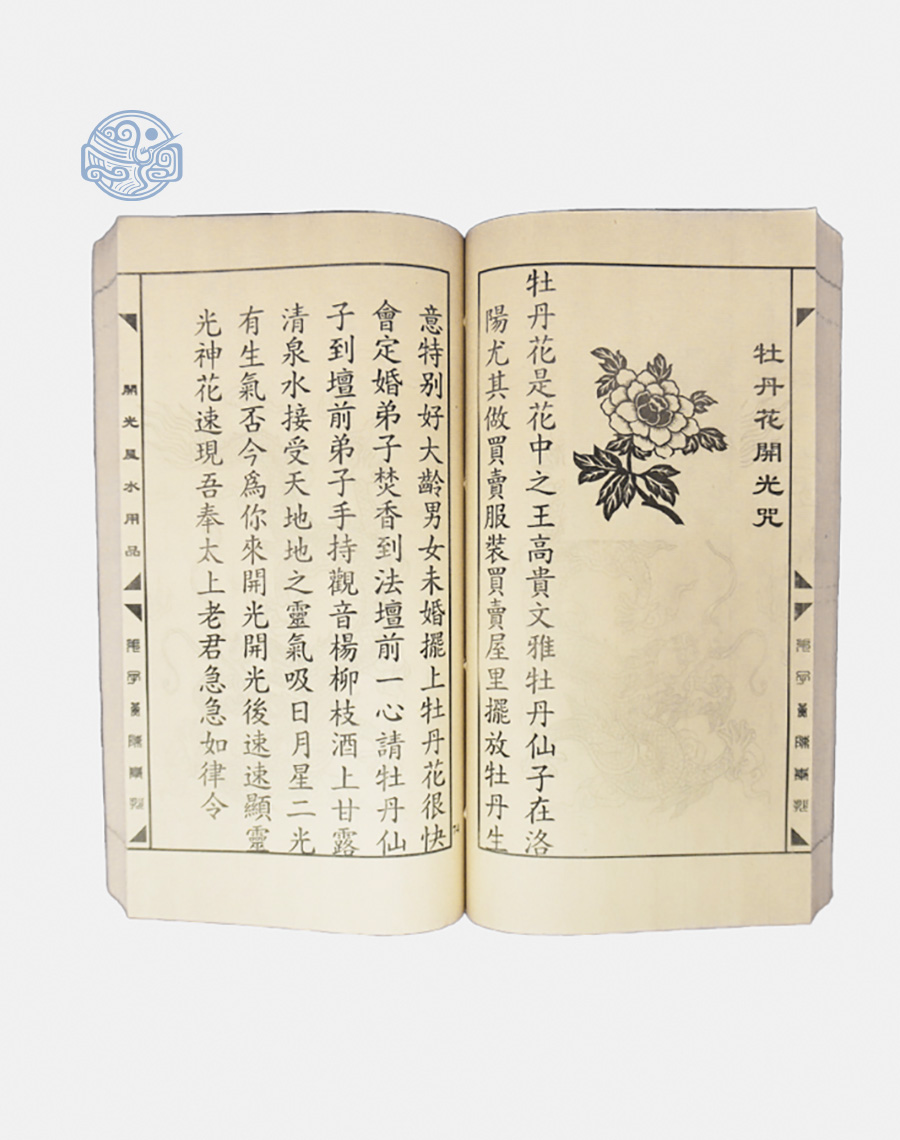 牡丹花開光咒
牡丹花是花中之王高貴文雅牡丹仙子在洛
陽尤其做買賣服裝買賣屋里擺放牡丹生
意特别好大齡男女未婚擺上牡丹花很快
會定婚弟子焚香到法壇前一心請牡丹仙
子到壇前弟子手持觀音楊柳枝酒上甘露
清泉水接受天地地之靈氣吸日月星二光
有生氣否今爲你來開光開光後速速顯靈
光神花速現吾奉太上老君急急如律令
開光風水用品